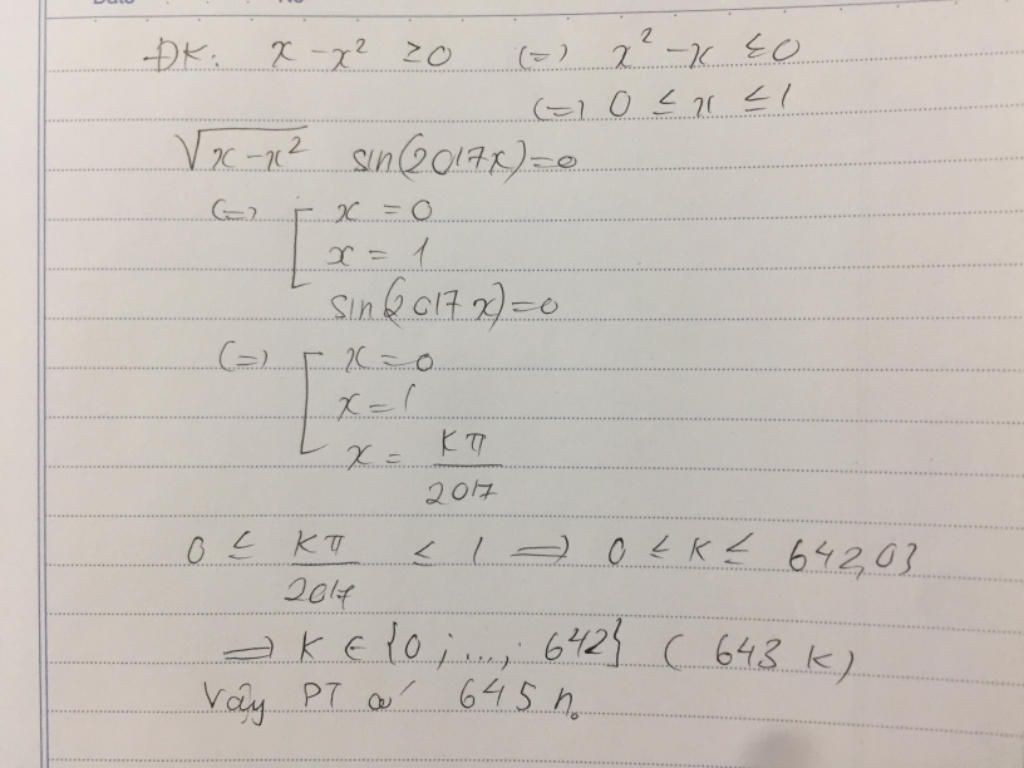 Date No
ĐK: x - x² ≥ 0 (=) x² - x ≤ 0
(=) 0 ≤ x ≤ 1
√(x - x²) sin(2017x) = 0
(=) [ x = 0
x = 1
sin(2017x) = 0
(=) [ x = 0
x = 1
x = Kπ/2017
0 ≤ Kπ/2017 ≤ 1 => 0 ≤ K ≤ 642,03
=> K ∈ {0; ...; 642} ( 643 K)
Vậy PT có 645 n.